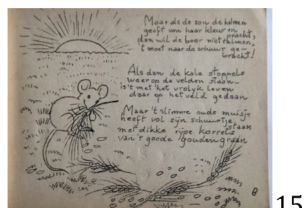 Maar als de zon de halmen
geeft van haar kleur en
pracht,
dan wil de boer niet talmen,
't moet naar de schuur ge-
bracht!
Als dan de kale stoppels
weer op de velden staan
is 't met het vrolyk leven
daar op het veld gedaan
Maar 't slimme oude muisje
heeft vol zyn schuurtje
staan
met dikke rype korrels
van 't goede gouden graan
8
15